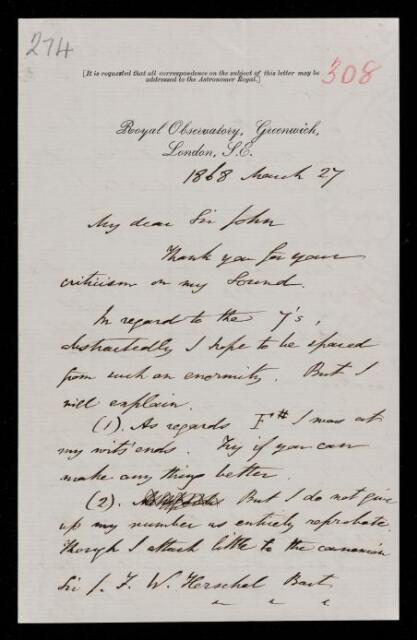 274
308
[It is requested that all correspondence on the subject of this letter may be
addressed to the Astronomer Royal.]
Royal Observatory, Greenwich,
London, S.E.
1868 March 27
My dear Sir John
Thank you for your
criticism on my Sound.
In regard to the 7's,
abstractedly I hope to be spared
from such an enormity. But I
will explain.
(1). As regards F# I was at
my wits' ends. Try if you can
make any thing better.
(2). But I do not give
up my number as entirely reprobate.
Though I attach little to the
Sir J. F. W. Herschel Bart